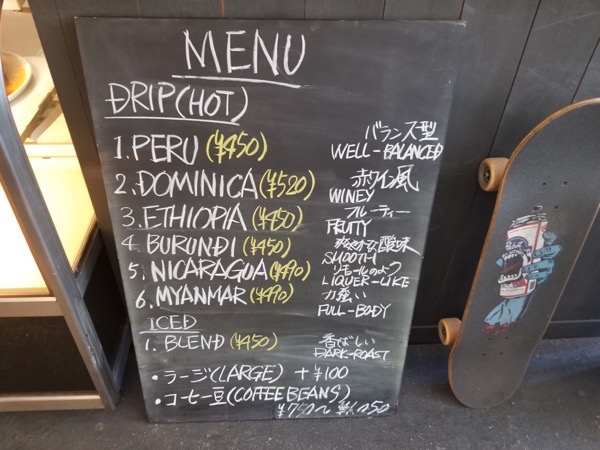 MENU
DRIP (HOT)
1. PERU (¥450) バランス型
WELL-BALANCED
2. DOMINICA (¥520) 赤ワイン風
WINEY
3. ETHIOPIA (¥450) フルーティー
FRUITY
4. BURUNDI (¥450) 酸味
SMOOTH
5. NICARAGUA (¥490) リキュールのよう
LIQUER-LIKE
6. MYANMAR (¥490) 力強い
FULL-BODY
ICED
1. BLEND (¥450) 香ばしい
DARK-ROAST
・ラージ(LARGE) +¥100
・コーヒー豆(COFFEE BEANS)
¥750〜¥1,050